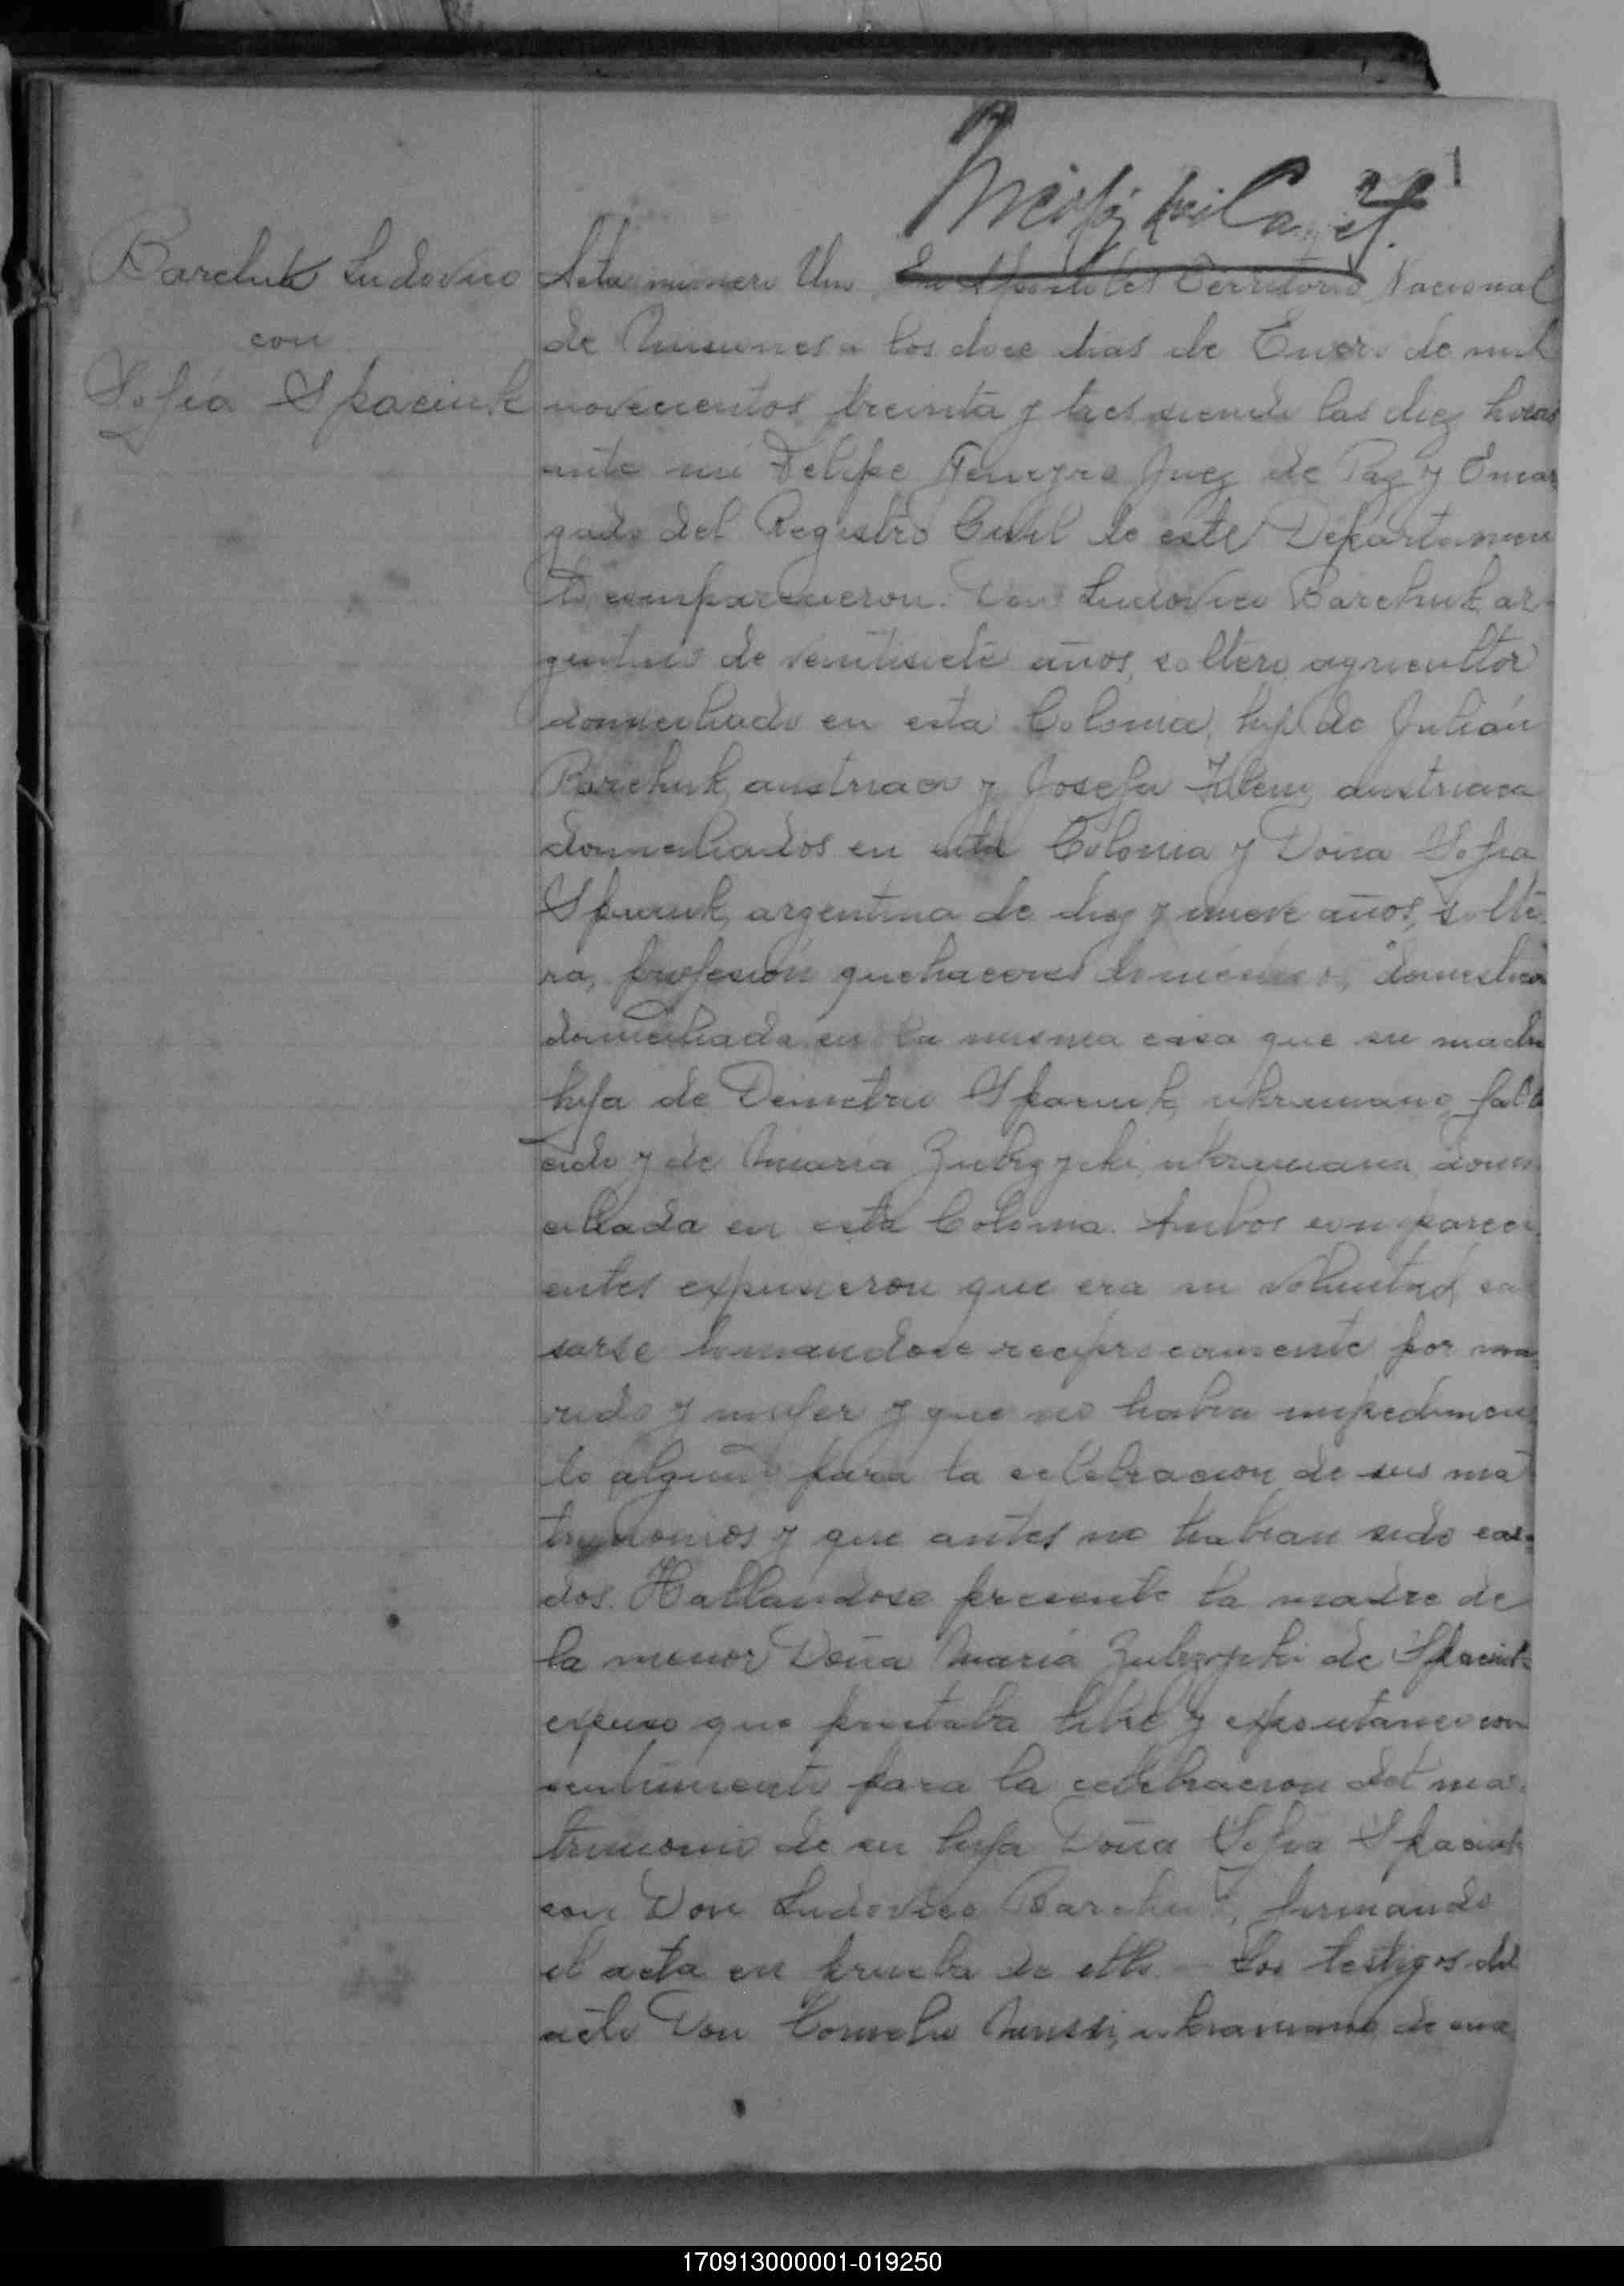 1
Barchuk Ludovico
con
Sofía Spaciuk
Acta numero Uno En Apostoles Territorio Nacional
de Misiones a los doce dias de Enero de mil
novecientos treinta y tres siendo las diez horas
ante mi Felipe Juez de Paz y Encar
gado del Registro Civil de este Departamen
to, comparecieron: Don Ludovico Barchuk, ar-
gentino de veintisiete años, soltero, agricultor
domiciliado en esta Colonia, hijo de Julián
Barchuk, austriaco y Josefa austriaca
domiciliados en esta Colonia y Doña Sofia
Spaciuk, argentina de diez y nueve años, solte-
ra, profesión quehaceres domésticos,
domiciliada en la misma casa que su madre
hija de Demetrio Spaciuk, ukraniano, falle
cido y de María Zubrzycki, ukraniana, domi
ciliada en esta Colonia. Ambos compareci
entes expusieron que era su voluntad ca
sarse tomandose reciprocamente por ma
rido y mujer y que no habia impedimen
to alguno para la celebracion de sus ma
trimonios y que antes no habian sido casa
dos. Hallandose presente la madre de
la menor Doña María Zubrzycki de Spaciuk
expuso que prestaba libre y espontaneo con
sentimiento para la celebracion del ma-
trimonio de su hija Doña Sofia Spaciuk
con Don Ludovico Barchuk, firmando
el acta en prueba de ello. - Los testigos del
acto Don Cornelio ukraniano, de cua
170913000001-019250